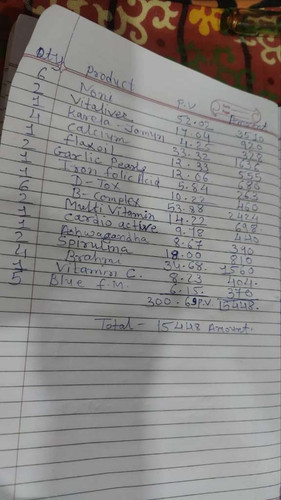 Qty Product P.V Amount
6 Noni 52.02 3510
2 17.64 920
1 Karela-Jamun 4.25
4 Calcium 33.32
1 flaxoil 12.33 555
2 Garlic Pearls 12.06 680
1 Iron folic Acid 5.84
1 D-Tox 10.22 460
6 B-Complex 53.38 2424
2 Multi Vitamin 14.22 698
1 Cardio active 9.78 440
Ashwagandha 8.67
2 Spirulina 18.00 810
4 Brahmi 34.68 1560
1 Vitamin C. 8.23 404
5 Blue f.M. 6.15 370
300.69 P.V. 15448.
Total - 15448 Amount.